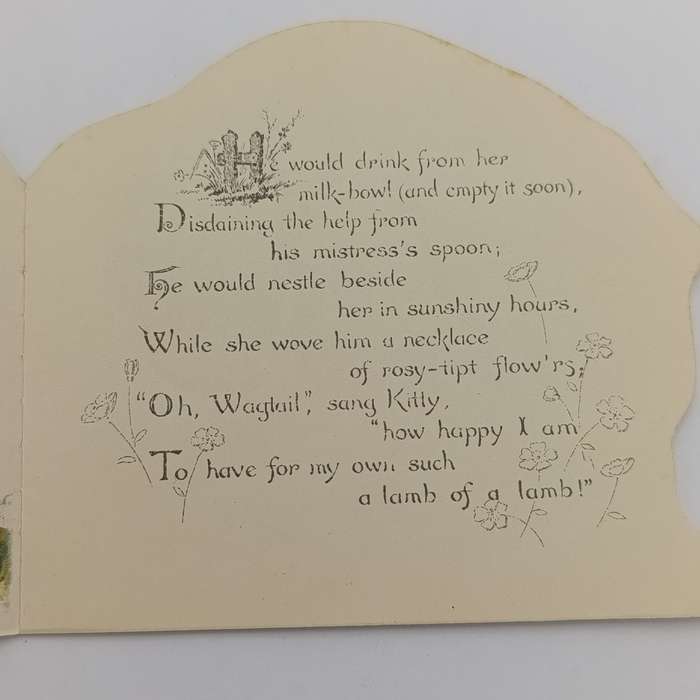 He would drink from her
milk-bowl (and empty it soon),
Disdaining the help from
his mistress's spoon;
He would nestle beside
her in sunshiny hours,
While she wove him a necklace
of rosy-tipt flow'rs;
"Oh, Wagtail", sang Kitty,
"how happy I am
To have for my own such
a lamb of a lamb!"